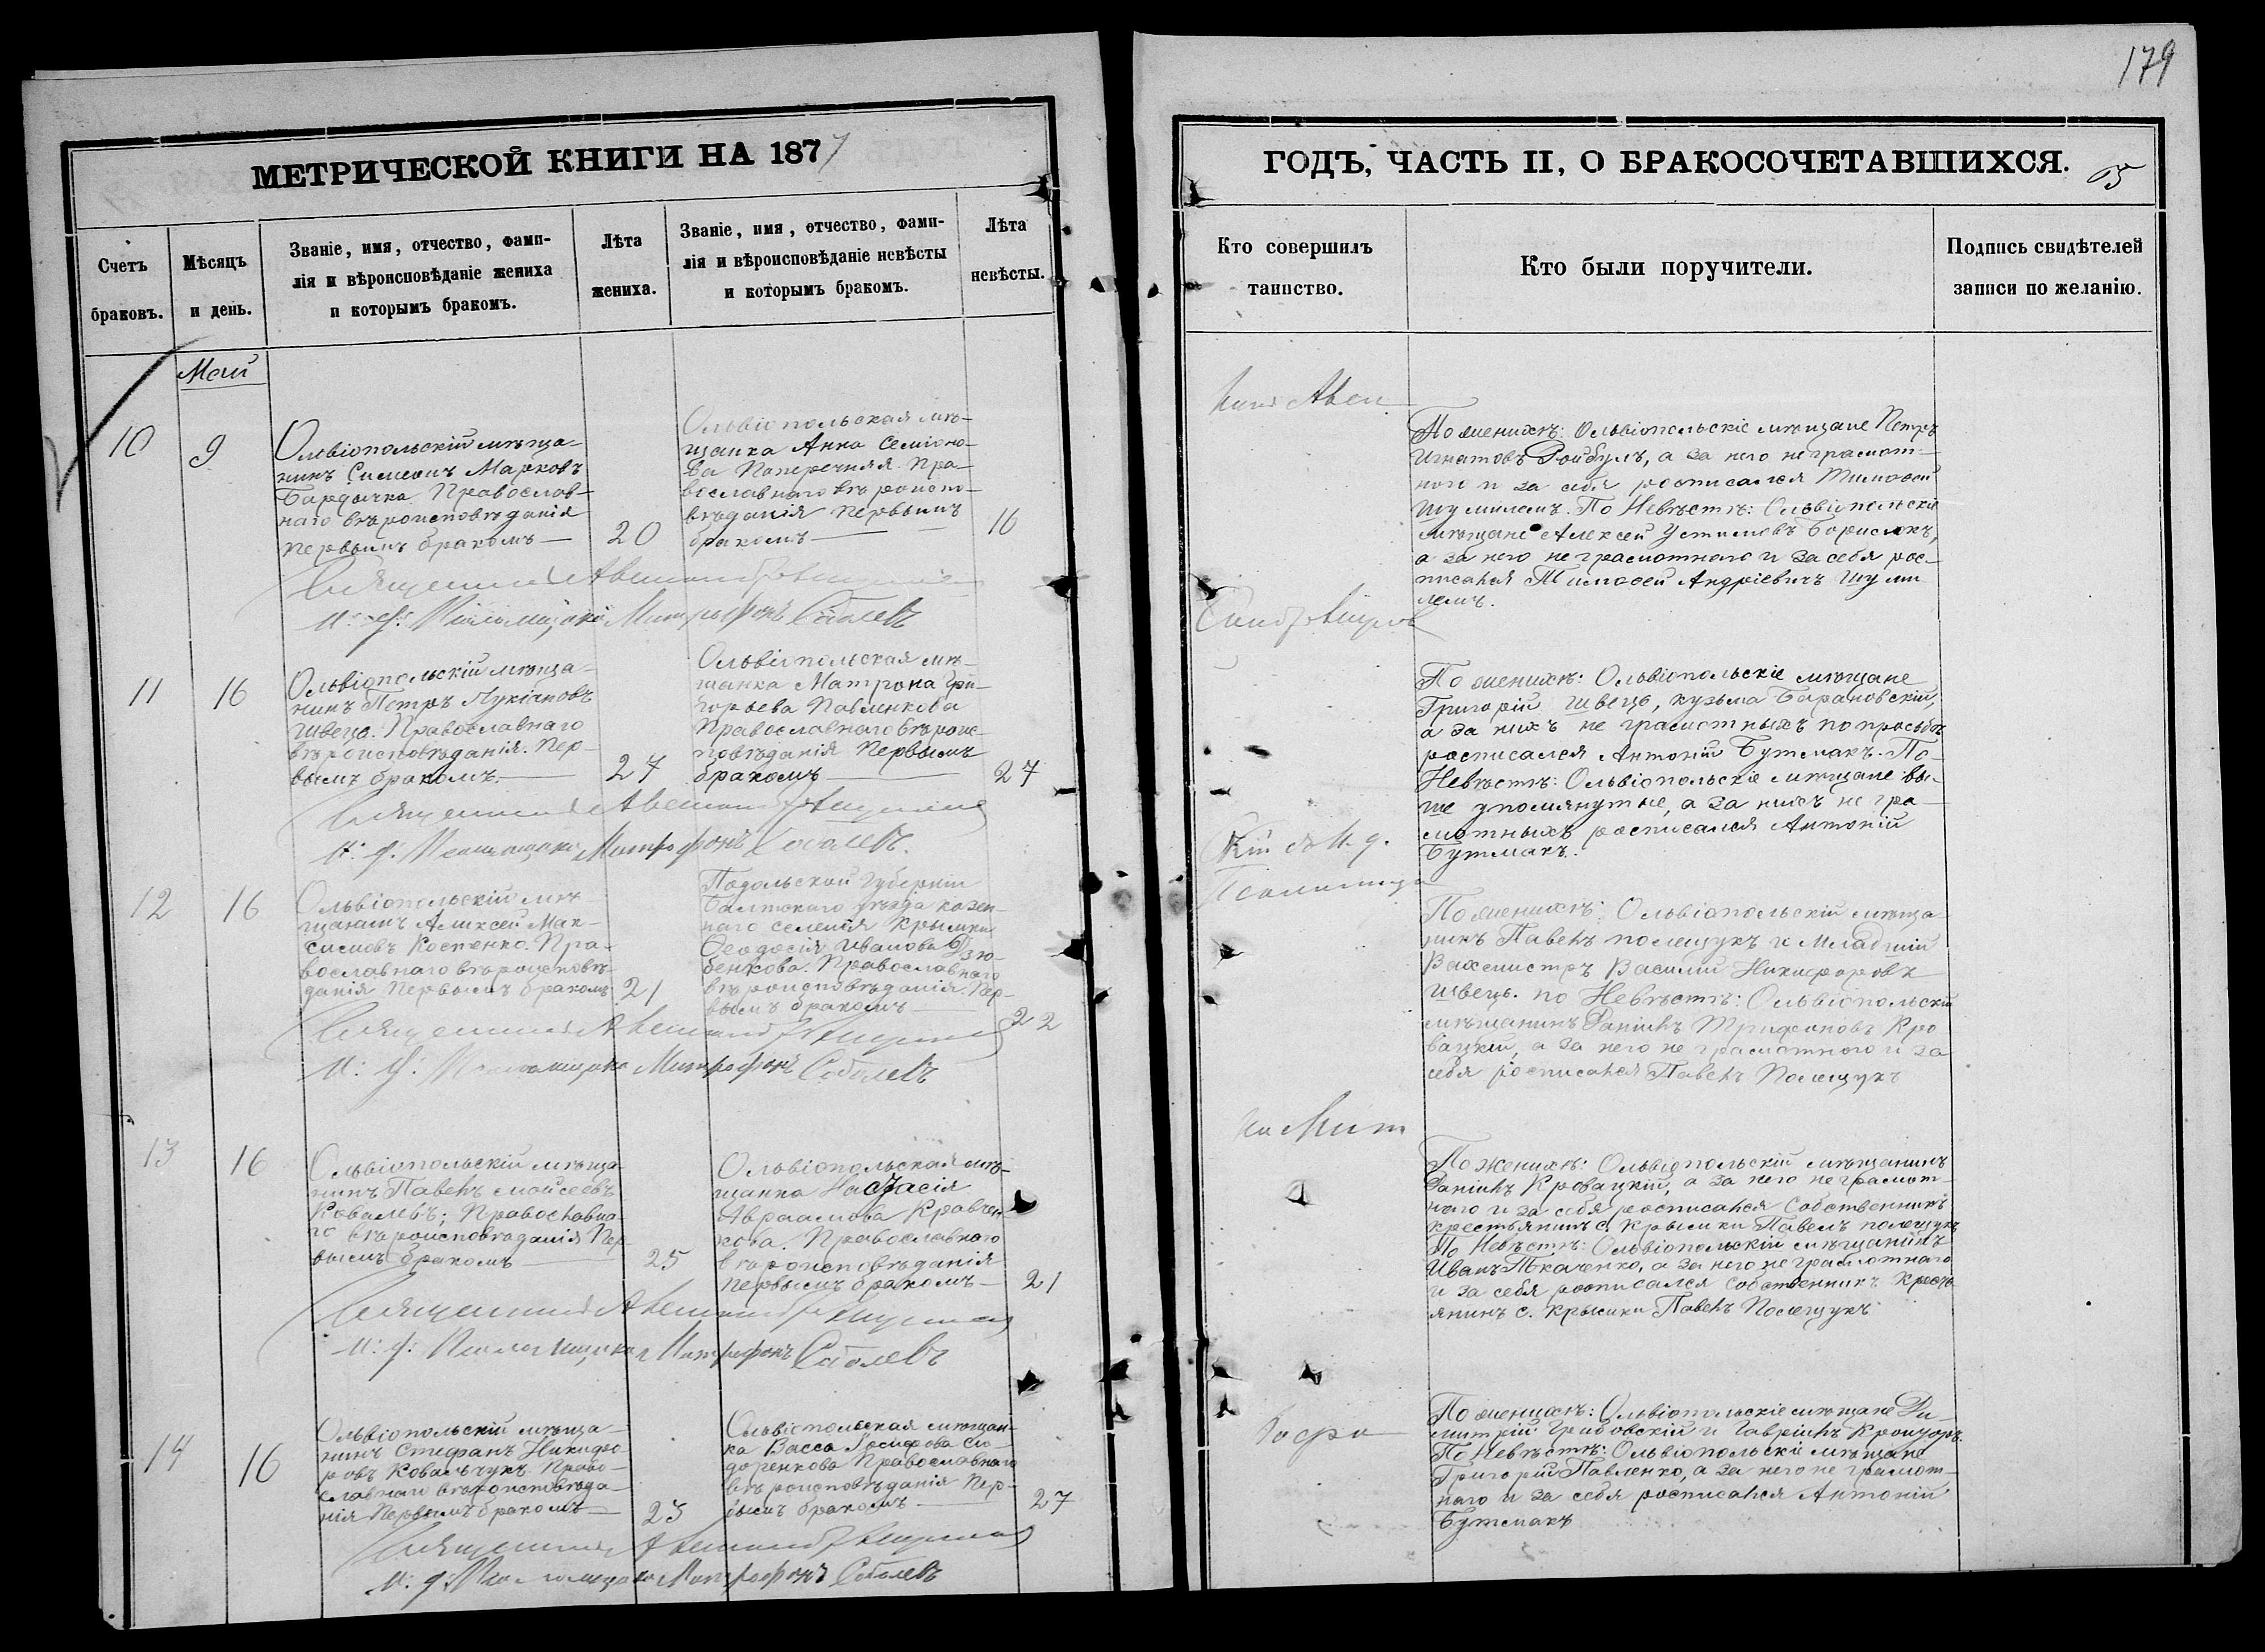 179
МЕТРИЧЕСКОЙ КНИГИ НА 1877
ГОДЪ, ЧАСТЬ II, О БРАКОСОЧЕТАВШИХСЯ.
5
Счетъ
браковъ.
Мѣсяцъ
и день.
Званіе, имя, отчество, фами-
лія и вѣроисповѣданіе жениха
и которымъ бракомъ.
Лѣта
жениха.
Званіе, имя, отчество, фами-
лія и вѣроисповѣданіе невѣсты
и которымъ бракомъ.
Лѣта
невѣсты.
Кто совершилъ
таинство.
Кто были поручители.
Подпись свидѣтелей
записи по желанію.
Май
10
9
Ольвіопольскій мѣща-
нинъ Симеонъ Марковъ
Бардычка Православ-
наго вѣроисповѣданія
первымъ бракомъ
20
Ольвіопольская мѣ-
щанка Анна Семіоно-
ва Поперечняя Пра-
вославнаго вѣроиспо-
вѣданія первымъ
бракомъ
16
Священникъ
Митрофанъ Соболевъ
По женихѣ: Ольвіопольскіе мѣщане Петръ
Игнатовъ Ройбулъ, а за него неграмот-
наго и за себя росписался Тимофей
Шумилемъ. По Невѣстѣ: Ольвіопольскіе
мѣщане Алексей Устимовъ Борисюкъ,
а за него не грамотнаго и за себя рос-
писался Тимофей Андріевичъ Шуми
лемъ.
11
16
Ольвіопольскій мѣща-
нинъ Петръ Лукіановъ
Швець. Православнаго
вѣроисповѣданія. Пер-
вымъ бракомъ.
27
Ольвіопольская мѣ-
щанка Матрона Гри-
горьева Павленкова
Православнаго вѣроис-
повѣданія Первымъ
бракомъ
27
Священникъ
И. д. Псаломщика Митрофанъ Соболевъ.
По женихѣ: Ольвіопольскіе мѣщане
Григорій Швець, кузьма Барановскій,
а за нихъ не грамотныхъ по просьбѣ
росписался Антоній Бутмакъ. По-
Невѣстѣ: Ольвіопольскіе мѣщане вы-
ше упомянутые, а за нихъ не гра-
мотныхъ росписался Антоній
Бутмакъ.
12
16
Ольвіопольскій мѣ
щанинъ Алексей Мак-
симовъ Костенко. Пра-
вославнаго вѣроисповѣ-
данія Первымъ бракомъ
21
Подольской Губерніи
Балтскаго уѣзда казен-
наго селенія Крымки
Феодосія Иванова Дзю-
бенкова. Православнаго
вѣроисповѣданія. Пер-
вымъ бракомъ
22
Священникъ
И. д. Псаломщика Митрофанъ Соболевъ
По женихѣ: Ольвіопольскій мѣща-
нинъ Павелъ полещукъ и Младшій
Вахмистръ Василій Никифоровъ
Швець. по Невѣстѣ: Ольвіопольскій
мѣщанинъ Даніилъ Трифоновъ Кро
вацкій, а за него не грамотнаго и за
себя росписался Павелъ Полещукъ
13
16
Ольвіопольскій мѣща-
нинъ Павелъ Мойсеевъ
Ковалевъ; Православна-
го вѣроисповѣданія Пер-
вымъ бракомъ
25
Ольвіопольская мѣ-
щанка Настасія
Авраамова Кравчен-
кова. Православнаго
вѣроисповѣданія
первымъ бракомъ
21
Священникъ
И. д. Псаломщика Митрофанъ Соболевъ
По женихѣ: Ольвіопольскій мѣщанинъ
Даніилъ Кровацкій, а за него неграмот-
наго и за себя росписался Собственникъ
крестьянинъ с. Крымки Павелъ полещукъ
По Невѣстѣ: Ольвіопольскій мѣщанинъ
Иванъ Ткаченко, а за него не грамотнаго
и за себя росписался Собственникъ Кресть
янинъ с. Крымки Павелъ Полещукъ
14
16
Ольвіопольскій мѣща-
нинъ Стефанъ Никифо-
ровъ Ковальчукъ Право-
славнаго вѣроисповѣда-
нія Первымъ бракомъ
Ольвіопольская мѣщан-
ка Васса Іосифова Си-
доренкова Православнаго
вѣроисповѣданія Пер-
вымъ бракомъ
27
Священникъ
И. д. Псаломщика Митрофанъ Соболевъ
По женихѣ: Ольвіопольскіе мѣщане Ди-
митрій Грибовскій и Гавріилъ
По Невѣстѣ: Ольвіопольскіе мѣщане
Григорій Павленко, а за него не грамот-
наго и за себя росписался Антоній
Бутмакъ